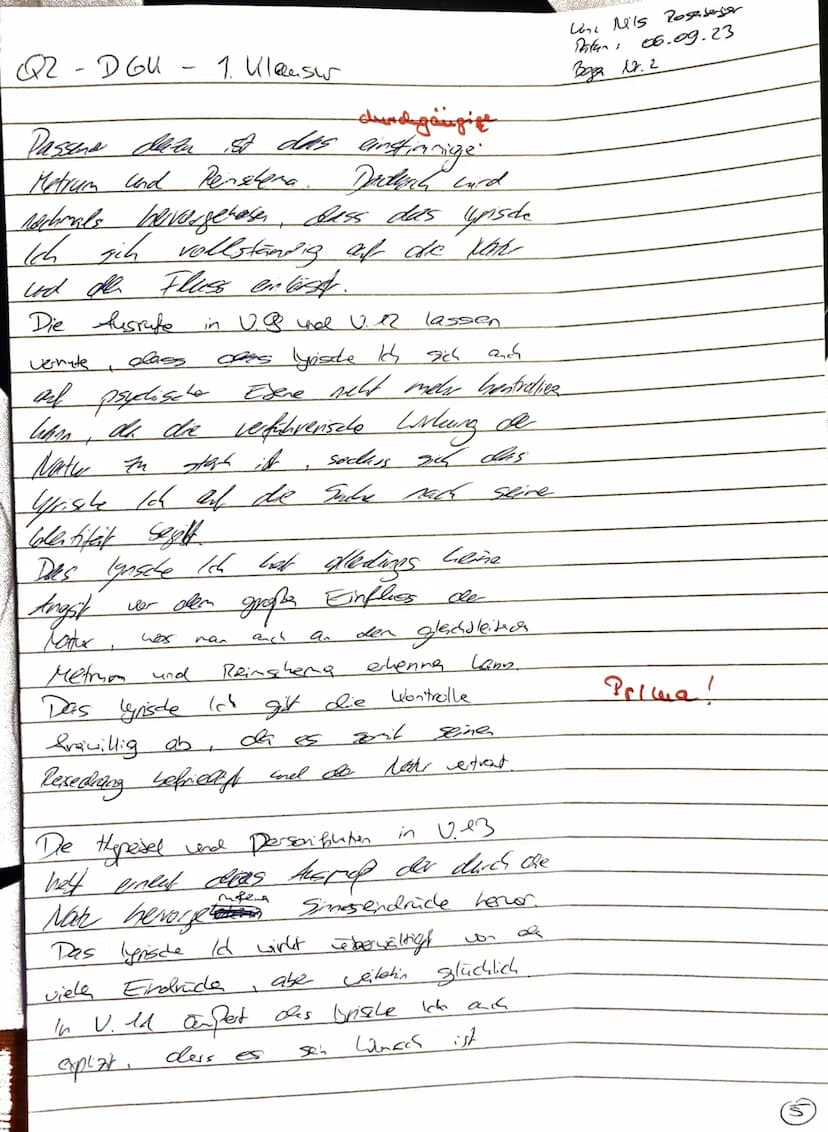 Von: Nils
Datum: 06.09.23
Bogen Nr. 2
Q2 - DGK - 1. Klausur
durchgängige
Passend dazu ist das einstimmige
Metrum und Reimschema. Dadurch wird
nochmals hervorgehoben, dass das lyrische
Ich sich vollständig auf die Natur
und den Fluss einlässt.
Die Ausrufe in V.9 und V.12 lassen
vermuten, dass das lyrische Ich sich auch
auf psychischer Ebene nicht mehr kontrollieren
kann, da die verführerische Wirkung der
Natur zu stark ist, sodass sich das
lyrische Ich auf die Suche nach seiner
Identität begibt.
Das lyrische Ich hat allerdings keine
Angst vor dem großen Einfluss der
Natur, was man auch an dem gleichbleibenden
Metrum und Reimschema erkennen kann.
Das lyrische Ich gibt die Kontrolle
freiwillig ab, da es somit seinen
Reisedrang befriedigt und der Natur vertraut.
Prima!
Die Hyperbel und Personifikation in V.13
hebt erneut das Ausmaß der durch die
Natur hervorgerufenen Sinneseindrücke hervor.
Das lyrische Ich wirkt überwältigt von den
vielen Eindrücken, aber weiterhin glücklich.
In V. 11 äußert das lyrische Ich auch
explizit, dass es sein Wunsch ist
5